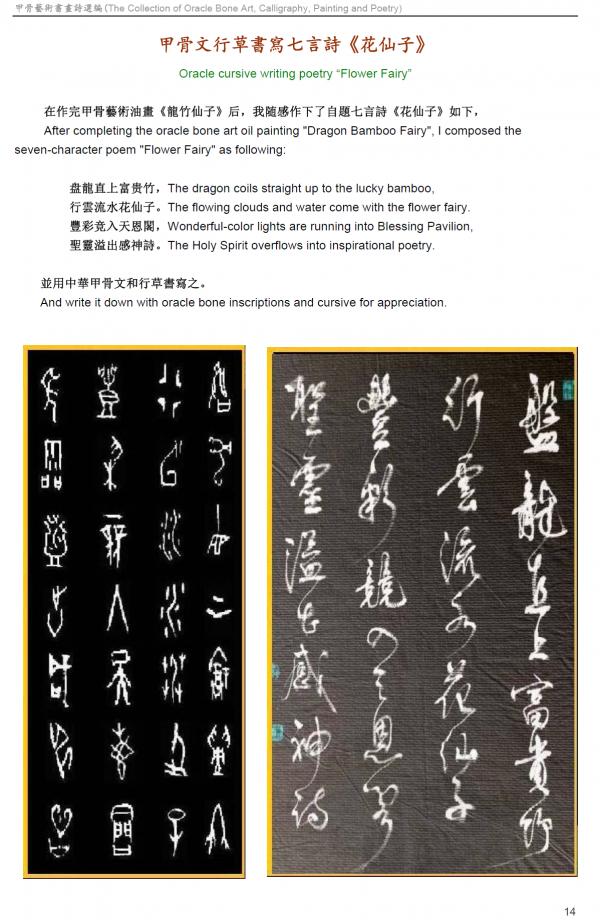 甲骨藝術書畫詩選編 (The Collection of Oracle Bone Art, Calligraphy, Painting and Poetry)
甲骨文行草書寫七言詩《花仙子》
Oracle cursive writing poetry “Flower Fairy”
在作完甲骨藝術油畫《龍竹仙子》后，我随感作下了自题七言詩《花仙子》如下，
After completing the oracle bone art oil painting "Dragon Bamboo Fairy", I composed the
seven-character poem "Flower Fairy" as following:
盘龍直上富贵竹，The dragon coils straight up to the lucky bamboo,
行雲流水花仙子。The flowing clouds and water come with the flower fairy.
豐彩竞入天恩閣，Wonderful-color lights are running into Blessing Pavilion,
聖靈溢出感神詩。The Holy Spirit overflows into inspirational poetry.
並用中華甲骨文和行草書寫之。
And write it down with oracle bone inscriptions and cursive for appreciation.
盤龍直上富貴竹
行雲流水花仙子
豐彩競入天恩閣
聖靈溢出感神詩
14